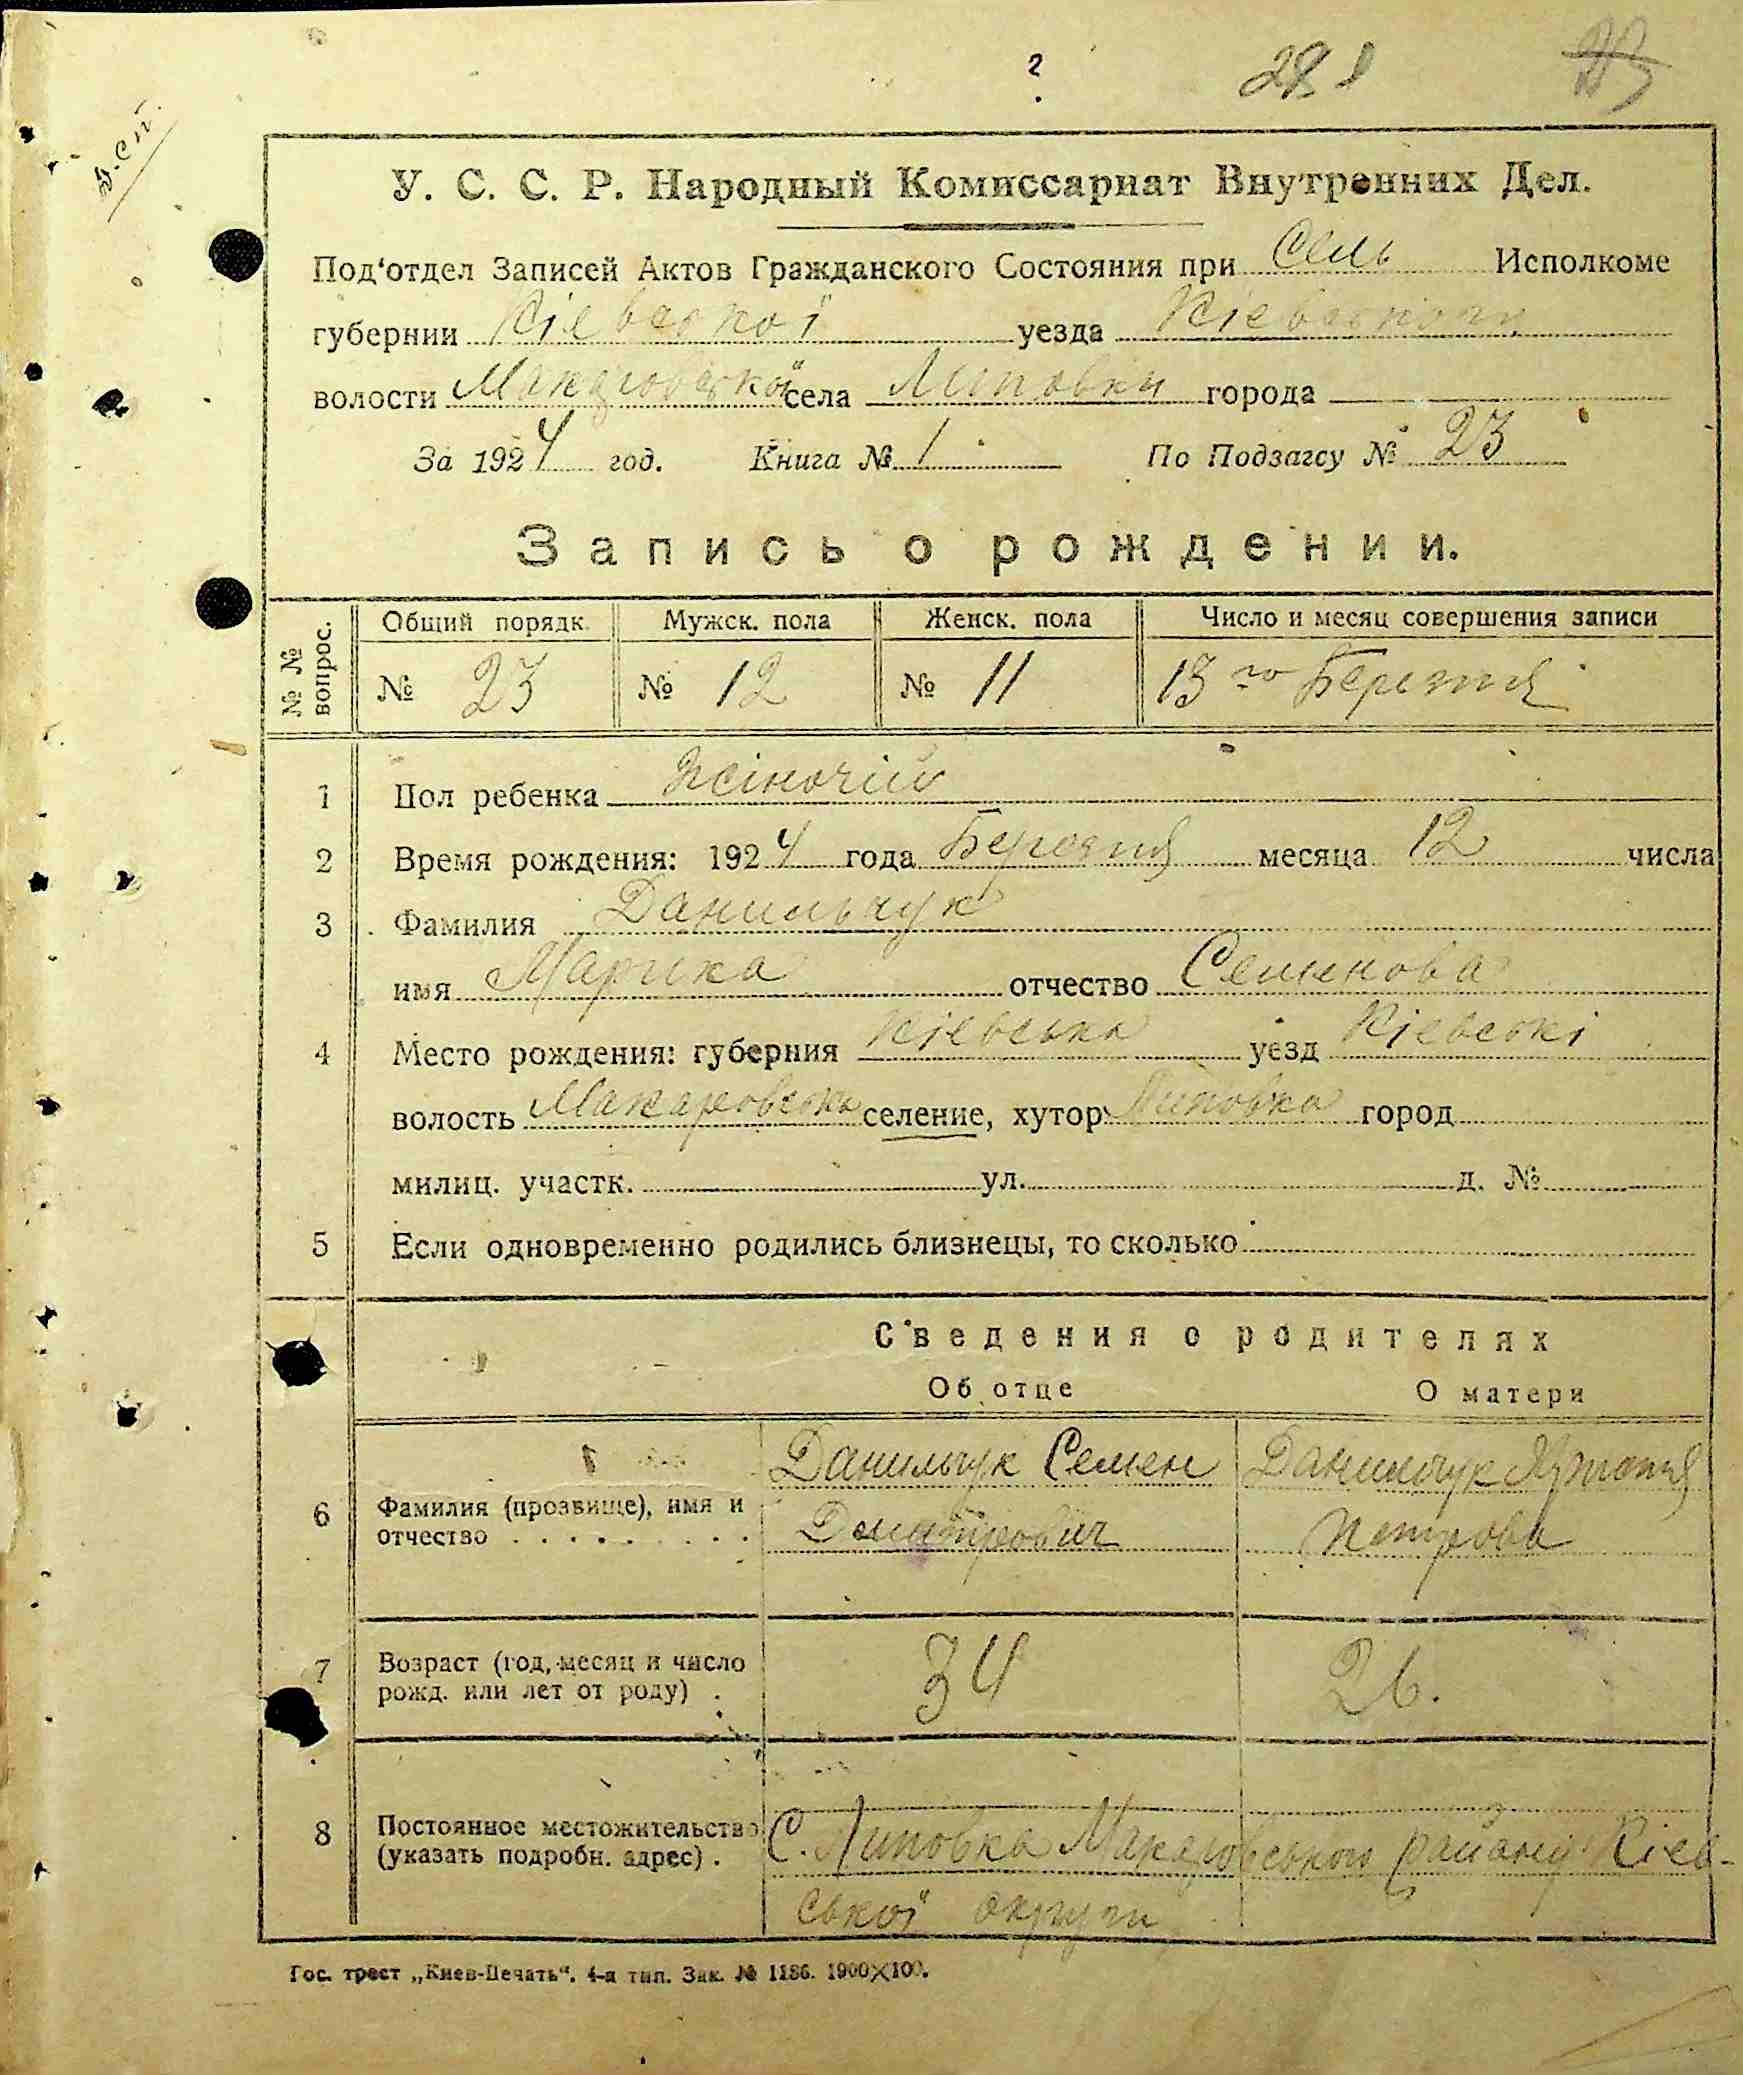 ?
У. С. С. Р. Народный Комиссариат Внутренних Дел.
Под'отдел Записей Актов Гражданского Состояния при Сель Исполкоме
губернии Кіевської уезда Кіевського
волости Макаровської села Липовки города
За 1924 год. Книга № 1 По Подзагсу № 23
Запись о рождении.
№ № вопрос. Общий порядк. Мужск. пола Женск. пола Число и месяц совершения записи
№ 23 № 12 № 11 13го Березня
1 Пол ребенка Жіночій
2 Время рождения: 1924 года Березня месяца 12 числа
3 Фамилия Данильчук
имя Марика отчество Семенова
4 Место рождения: губерния Кіевська уезд Кіевські
волость Макаровська селение, хутор Липовка город
милиц. участк. ул. д. №
5 Если одновременно родились близнецы, то сколько
Сведения о родителях
Об отце О матери
Данильчук Семен Данильчук
6 Фамилия (прозвище), имя и
отчество Дмитрович Петрова
7 Возраст (год, месяц и число
рожд. или лет от роду) . 34 26.
8 Постоянное местожительство
(указать подробн. адрес) . С. Липовка Макаровського району Кіев-
ської округи
Гос. трест „Киев-Печать". 4-я тип. Зак. № 1186. 1900×100.